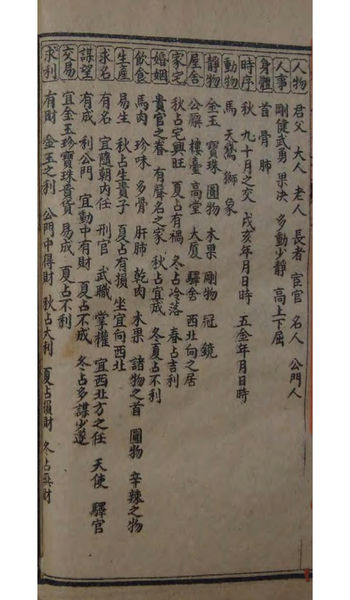 人物 君父 大人 老人 長者 宦官 名人 公門人
人事 剛健武勇 果决 多動少靜 高上下屈
身體 首 骨 肺
時序 秋 九十月之交 戌亥年月日時 五金年月日時
動物 馬 天鵞 獅 象
靜物 金玉 寶珠 圓物 木果 剛物 冠 鏡
屋舍 公廨 樓臺 高堂 大廈 驛舍 西北向之居
家宅 秋占宅興旺 夏占有禍 冬占冷落 春占吉利
婚姻 貴官之眷 有聲名之家 秋占宜成 冬夏占不利
飲食 馬肉 珍味 多骨 肝肺 乾肉 木果 諸物之首 圓物 辛辣之物
生產 易生 秋占生貴子 夏占有損 坐宜向西北
求名 有名 宜隨朝內任 刑官 武職 掌權 宜西北方之任 天使 驛官
謀望 有成 利公門 宜動中有財 夏占不成 冬占多謀少遂
交易 宜金玉珍寶珠貴貨 易成 夏占不利
求利 有財 金玉之利 公門中得財 秋占大利 夏占損財 冬占無財